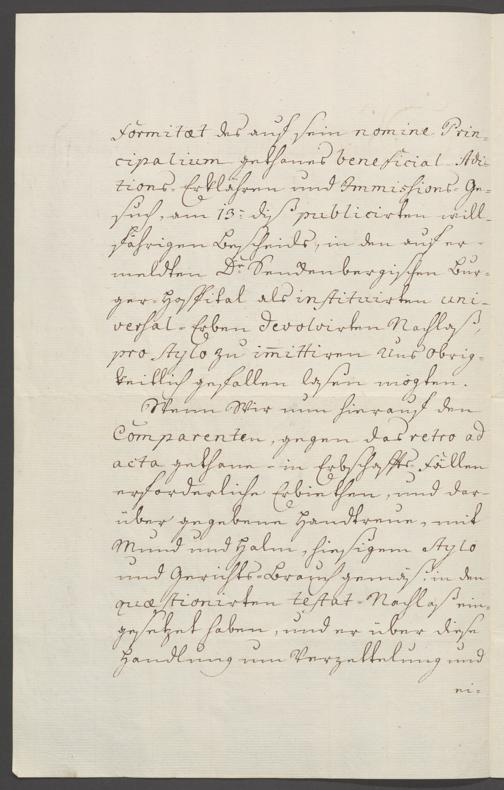 formitæt des auf sein nomine Prin-
cipalium gethanes beneficial Adi-
tions-Erklähren und Immissions-Ge-
such, am 13: diß publicirten will-
fährigen Bescheids, in den auf er-
meldten Dr. Senckenbergischen Bur-
ger-Hospital als instituirten uni-
versal-Erben devolvirten Nachlaß,
pro stylo zu im̅ittiren Uns Obrig-
keitlich gefallen lasen mögten.
Wenn Wir nun hierauf den
Comparenten, gegen das retro ad
acta gethane-in Erbschaffts-Fällen
erforderliche Erbiethen, und dar-
über gegebene Handtreue, mit
Mund und Halm, hiesigem Stylo
und Gerichts-Brauch gemäs, in den
quæstionirten testat-Nachlaß ein-
gesetzet haben, und er über diese
Handlung um Verzettelung und
ei-